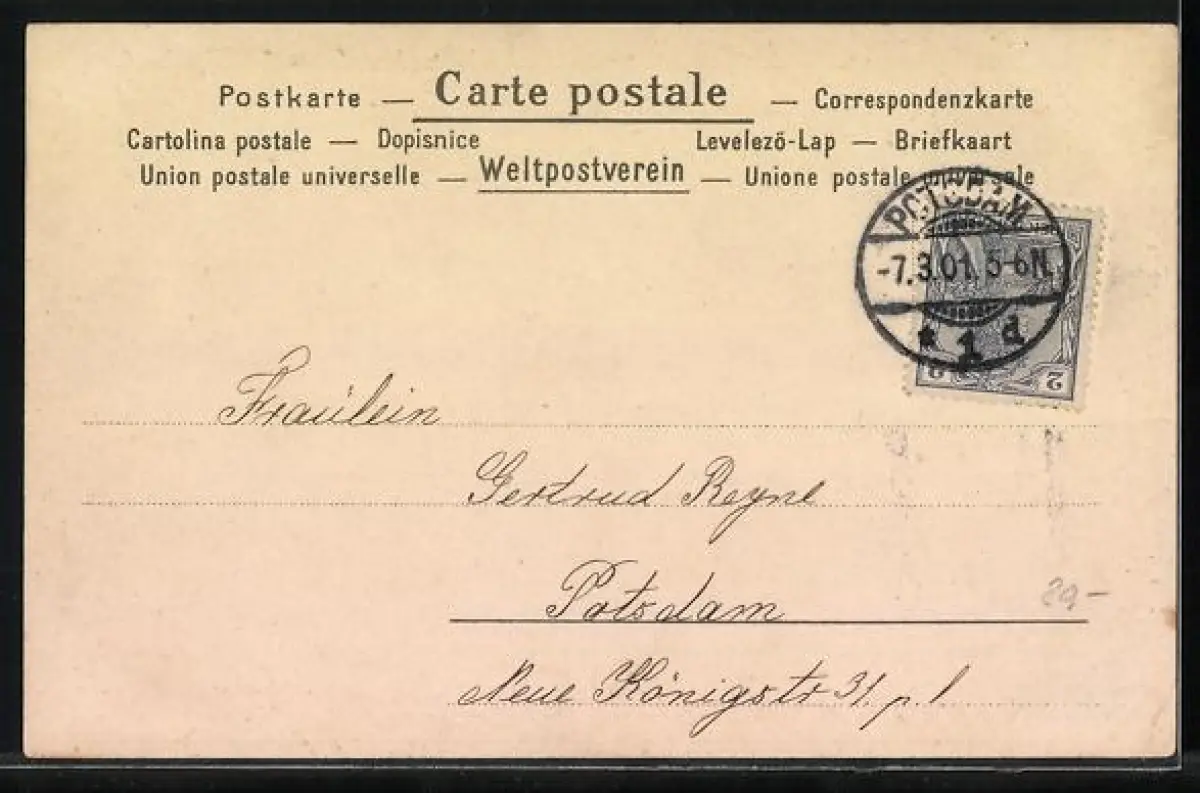 Postkarte — Carte postale — Correspondenzkarte
Cartolina postale — Dopisnice Levelező-Lap — Briefkaart
Union postale universelle — Weltpostverein — Unione postale universale
POTSDAM
-7.3.01. 5-6N.
* 1 d
2 2
Fräulein
Gertrud Reyne
Potsdam
Neue Königstr 31. p. l
20,-